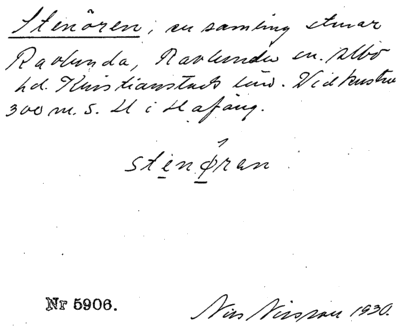 Stenören, en samling stenar
Ravlunda, Ravlunda sn. Albo
hd. Kristianstads län. Vid kusten
300 m. S. H i Hafäng.
stenøran
Nr 5906.
Nils Nilsson 1930.